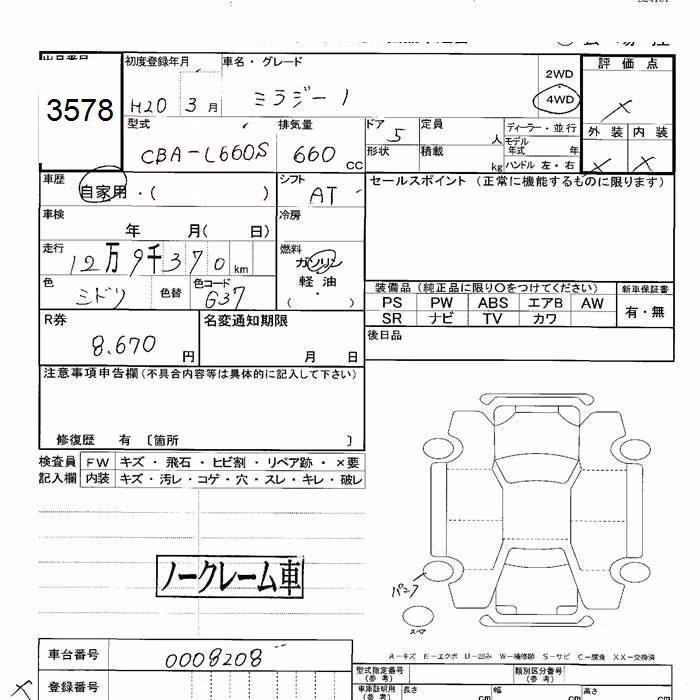 評価点
初度登録年月 車名・グレード
3578 H20 3月 ミラジーノ 2WD 4WD ×
型式 排気量 ドア 定員 ディーラー・並行 外装 内装
CBA-L660S 660 CC 5 人 モデル年式 年
形状 積載 kg ハンドル 左・右 × ×
車歴 シフト セールスポイント (正常に機能するものに限ります)
自家用・( ) AT
車検 冷房
年 月( 日)
走行 燃料
12万9千370km ガソリン
軽油
色 色替 色コード
ミドリ G37 ( ・ )
装備品 (純正品に限り○をつけてください) 新車保証書
PS PW ABS エアB AW 有・無
SR ナビ TV カワ
R券 名変通知期限 後日品
8.670円 月 日
注意事項申告欄(不具合内容等は具体的に記入して下さい)
修復歴 有 〔箇所 〕
検査員 FW キズ・飛石・ヒビ割・リペア跡・×要
記入欄 内装 キズ・汚レ・コゲ・穴・スレ・キレ・破レ
ノークレーム車
パンク
スペア
A-キズ E-エクボ U-凹み W-補修跡 S-サビ C-腐食 XX-交換済
車台番号 0008208
型式指定番号(参考) 類別区分番号(参考)
登録番号
車庫証明用(参考) 長さ cm 幅 cm 高さ cm
×